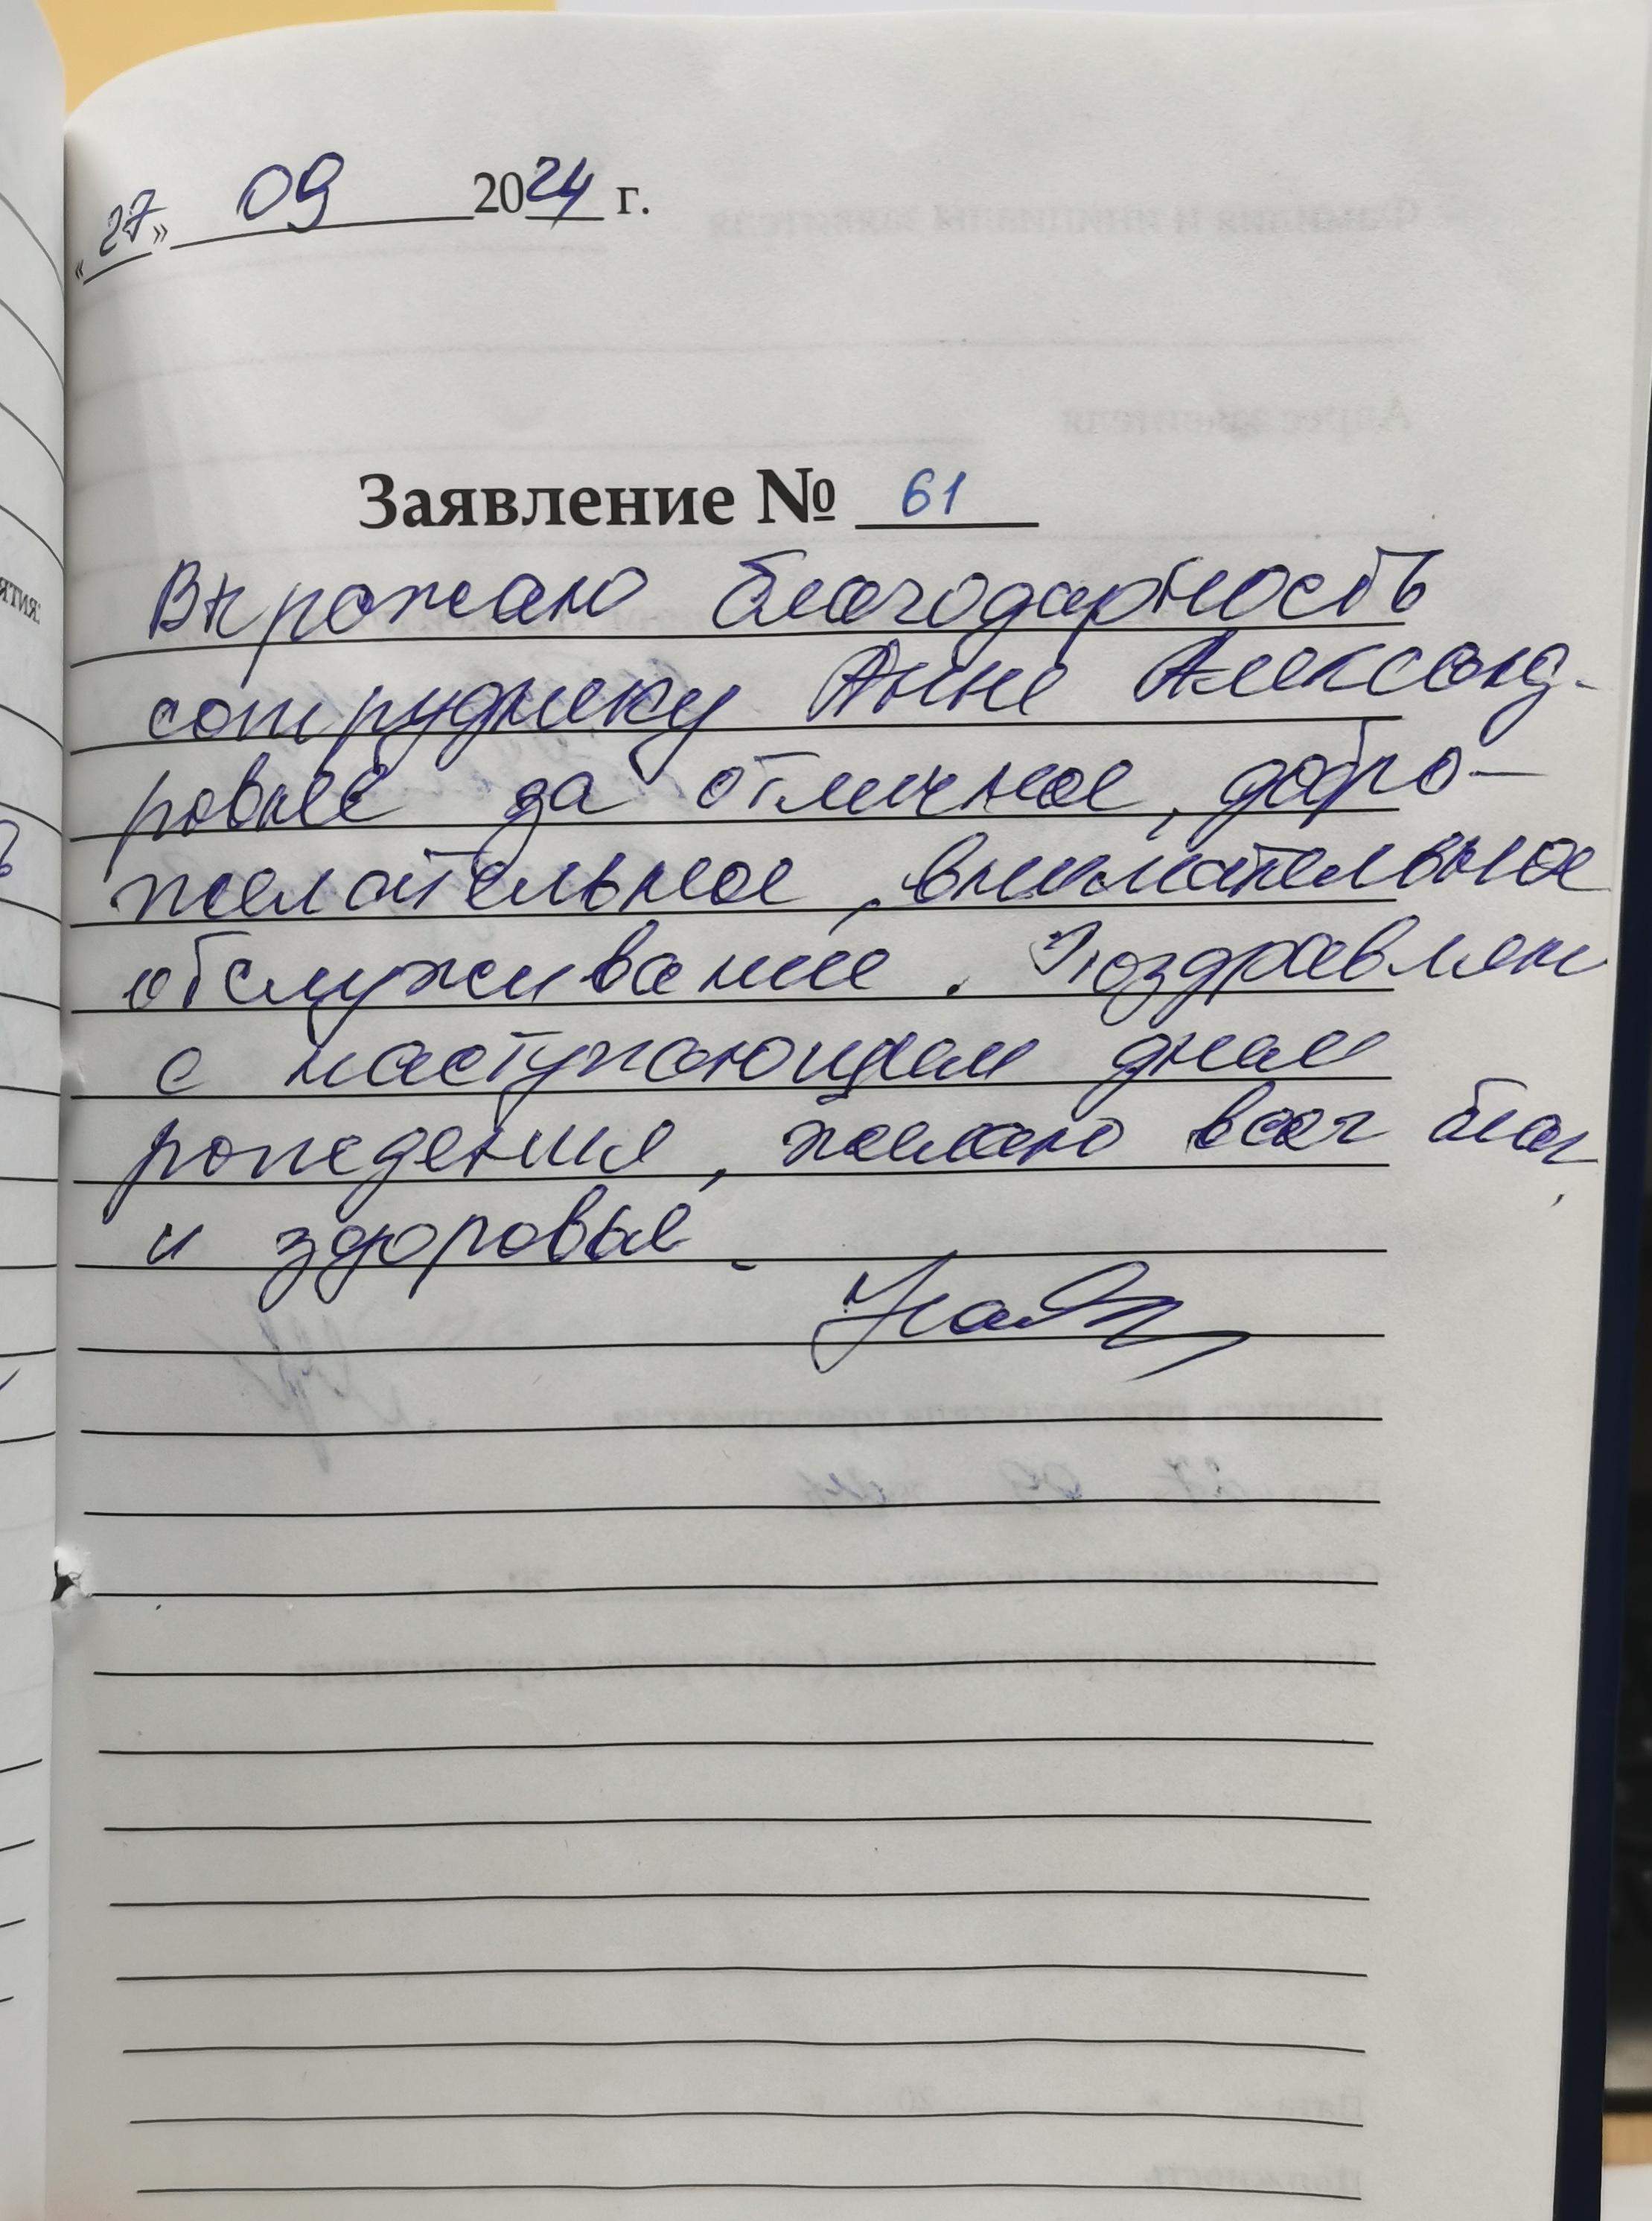 «27» 09 2024 г.
Заявление № 61
Выражаю благодарность
сотруднику Анне Александ-
ровне за отличное, добро-
желательное, внимательное
обслуживание. Поздравляю
с наступающим днем
рождения, желаю всех благ,
и здоровья.